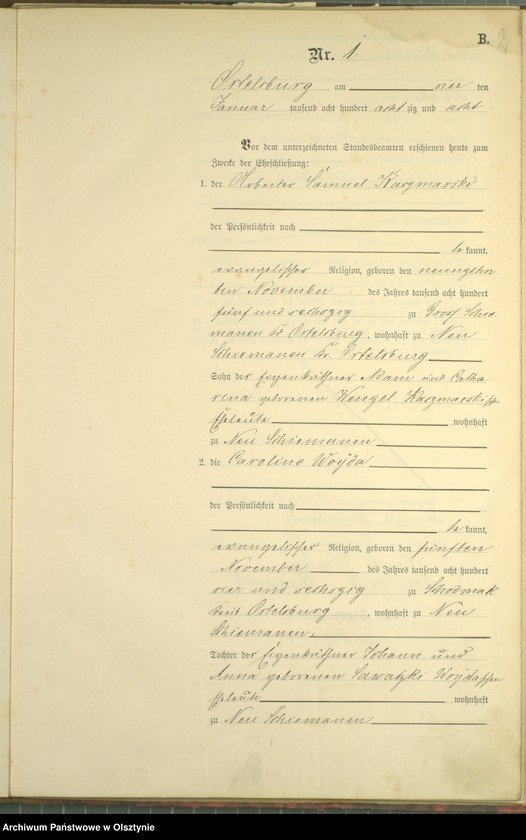 B.
2
Nr. 1.
Ortelsburg am vier ten
Januar tausend acht hundert acht zig und acht
Vor dem unterzeichneten Standesbeamten erschienen heute zum
Zwecke der Eheschließung:
1. der Arbeiter Samuel Kaczmarski
der Persönlichkeit nach
be kannt,
evangelischer Religion, geboren den neunzehn
ten November des Jahres tausend acht hundert
fünf und sechszig zu Groß Schie
manen Kr. Ortelsburg, wohnhaft zu Neu
Schiemanen Kr. Ortelsburg
Sohn der Eigenkäthner Adam und Catha
rina geborenen Wengel Kaczmarski'schen
Eheleute wohnhaft
zu Neu Schiemanen
2. die Caroline Woyda
der Persönlichkeit nach
be kannt,
evangelischer Religion, geboren den fünften
November des Jahres tausend acht hundert
vier und sechszig zu Schodmak
Kreis Ortelsburg, wohnhaft zu Neu
Schiemanen.
Tochter der Eigenkäthner Johann und
Anna geborenen Sawatzki Woyda'schen
Eheleute wohnhaft
zu Neu Schiemanen
Archiwum Państwowe w Olsztynie